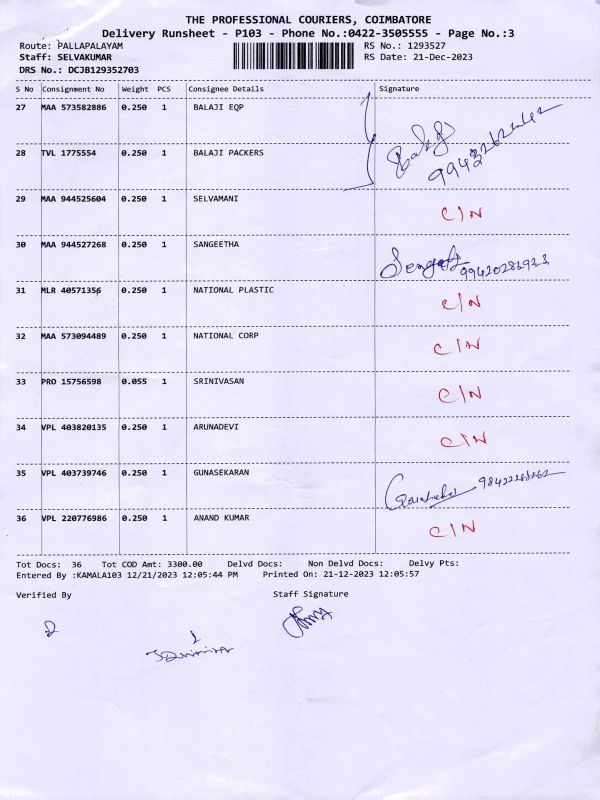 THE PROFESSIONAL COURIERS, COIMBATORE
Delivery Runsheet - P103 - Phone No.:0422-3505555 - Page No.:3
Route: PALLAPALAYAM RS No.: 1293527
Staff: SELVAKUMAR RS Date: 21-Dec-2023
DRS No.: DCJB129352703
S No Consignment No Weight PCS Consignee Details Signature
27 MAA 573582886 0.250 1 BALAJI EQP
28 TVL 1775554 0.250 1 BALAJI PACKERS Balaji
29 MAA 944525604 0.250 1 SELVAMANI C/N
30 MAA 944527268 0.250 1 SANGEETHA
31 MLR 40571356 0.250 1 NATIONAL PLASTIC C/N
32 MAA 573094489 0.250 1 NATIONAL CORP C/N
33 PRO 15756598 0.055 1 SRINIVASAN C/N
34 VPL 403820135 0.250 1 ARUNADEVI C/N
35 VPL 403739746 0.250 1 GUNASEKARAN
36 VPL 220776986 0.250 1 ANAND KUMAR C/N
Tot Docs: 36 Tot COD Amt: 3300.00 Delvd Docs: Non Delvd Docs: Delvy Pts:
Entered By :KAMALA103 12/21/2023 12:05:44 PM Printed On: 21-12-2023 12:05:57
Verified By Staff Signature